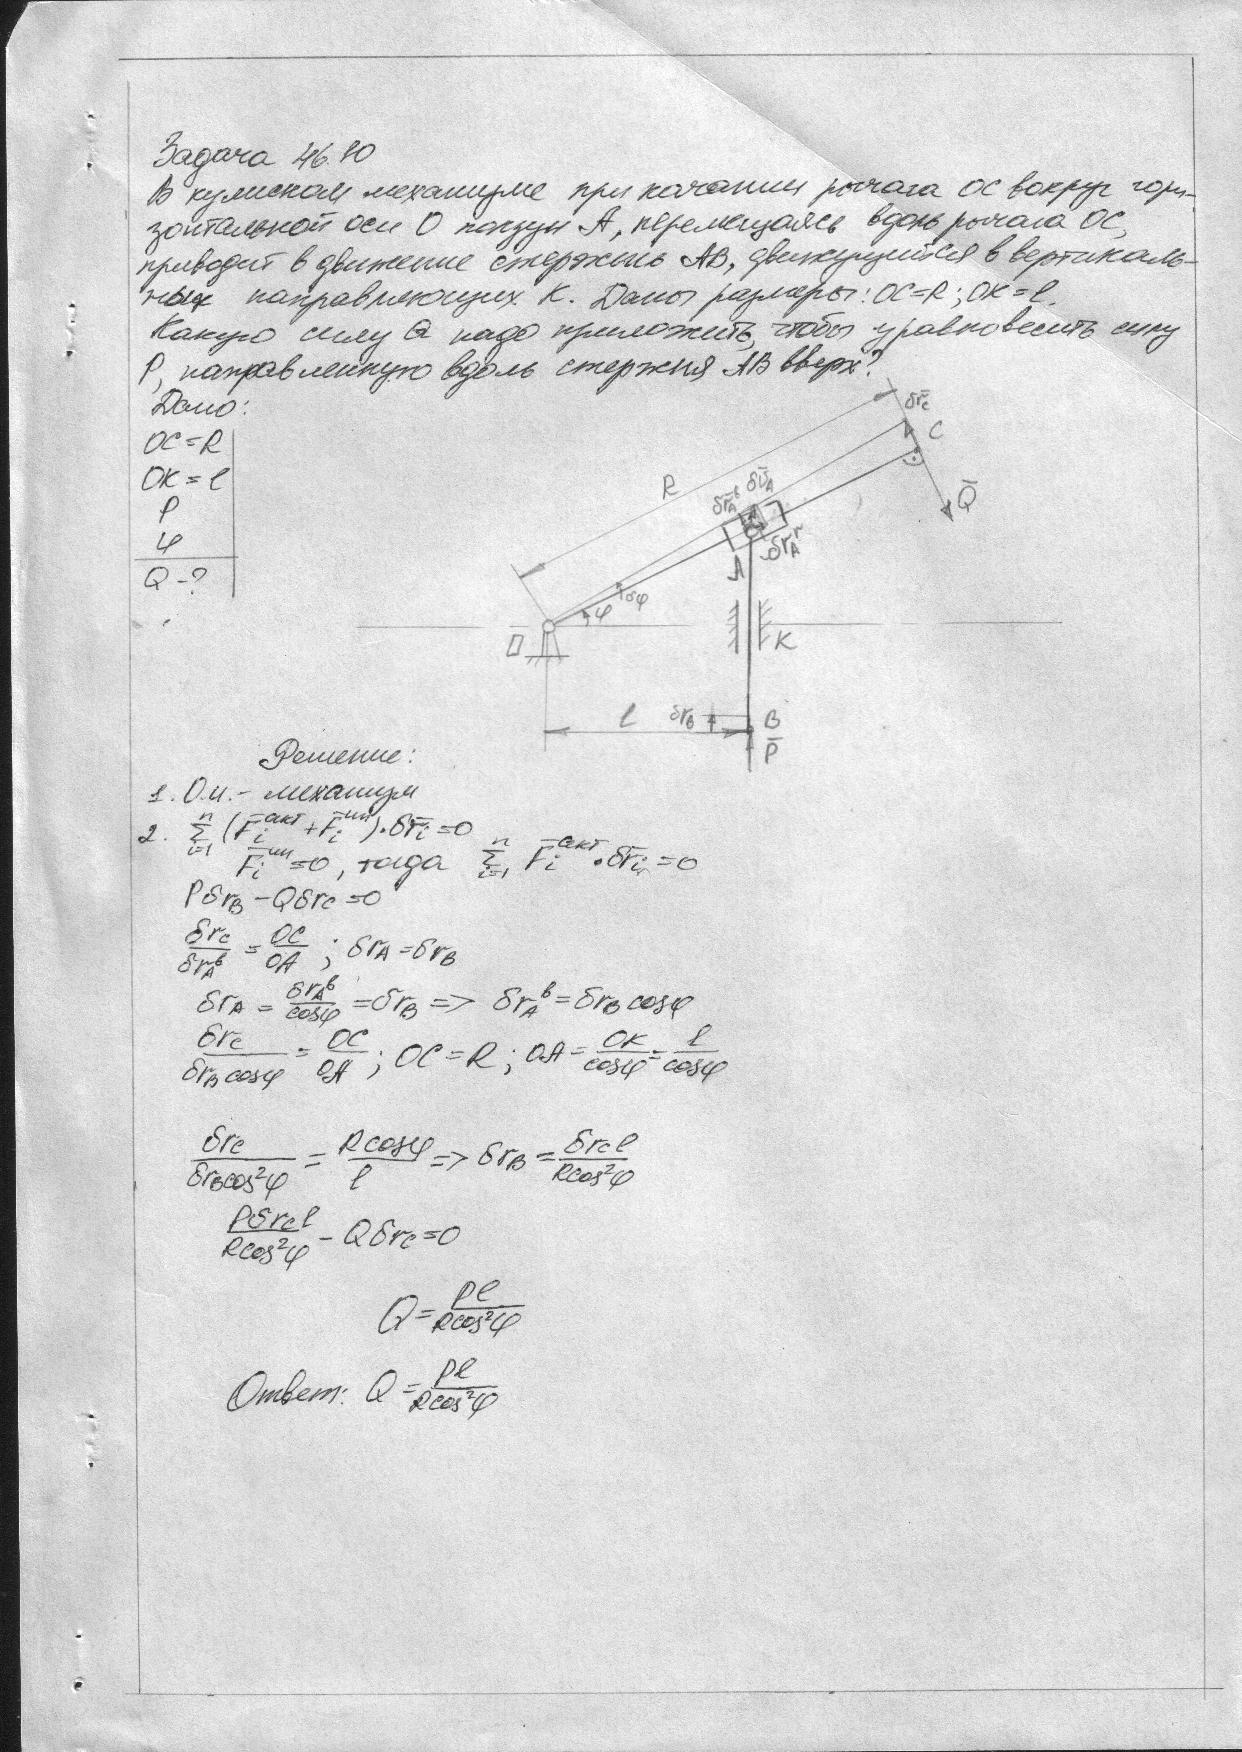 Задача 46.10
В кулисном механизме при качании рычага ОС вокруг гори-
зонтальной оси О ползун А, перемещаясь вдоль рычага ОС,
приводит в движение стержень АВ, движущийся в вертикаль-
ных направляющих К. Даны размеры: ОС=R; ОК=l.
Какую силу Q надо приложить, чтобы уравновесить силу
Р, направленную вдоль стержня АВ вверх?
Дано:
OC=R
OK=l
P
φ
Q-?
δr̄c
C
R
δr̄Aᵇ δῡA
Q̄
δr̄Aʳ
A
δφ
φ
O
K
l
δrB
B
P̄
Решение:
1. О.и.- механизм
2. Σⁿᵢ₌₁ (F̄ᵢᵃᵏᵗ + F̄ᵢᵘⁿ)·δr̄ᵢ=0
F̄ᵢᵘⁿ=0, тогда Σⁿᵢ₌₁ F̄ᵢᵃᵏᵗ·δr̄ᵢ=0
PδrB - Qδrc=0
δrc/δrAᵇ = OC/OA ; δrA=δrB
δrA = δrAᵇ/cosφ = δrB => δrAᵇ = δrB cosφ
δrc/δrB cosφ = OC/OA ; OC=R; OA= OK/cosφ = l/cosφ
δrc/δrB cos²φ = Rcosφ/l => δrB = δrc l/Rcos²φ
Pδrc l/Rcos²φ - Qδrc=0
Q= Pl/Rcos²φ
Ответ: Q= Pl/Rcos²φ